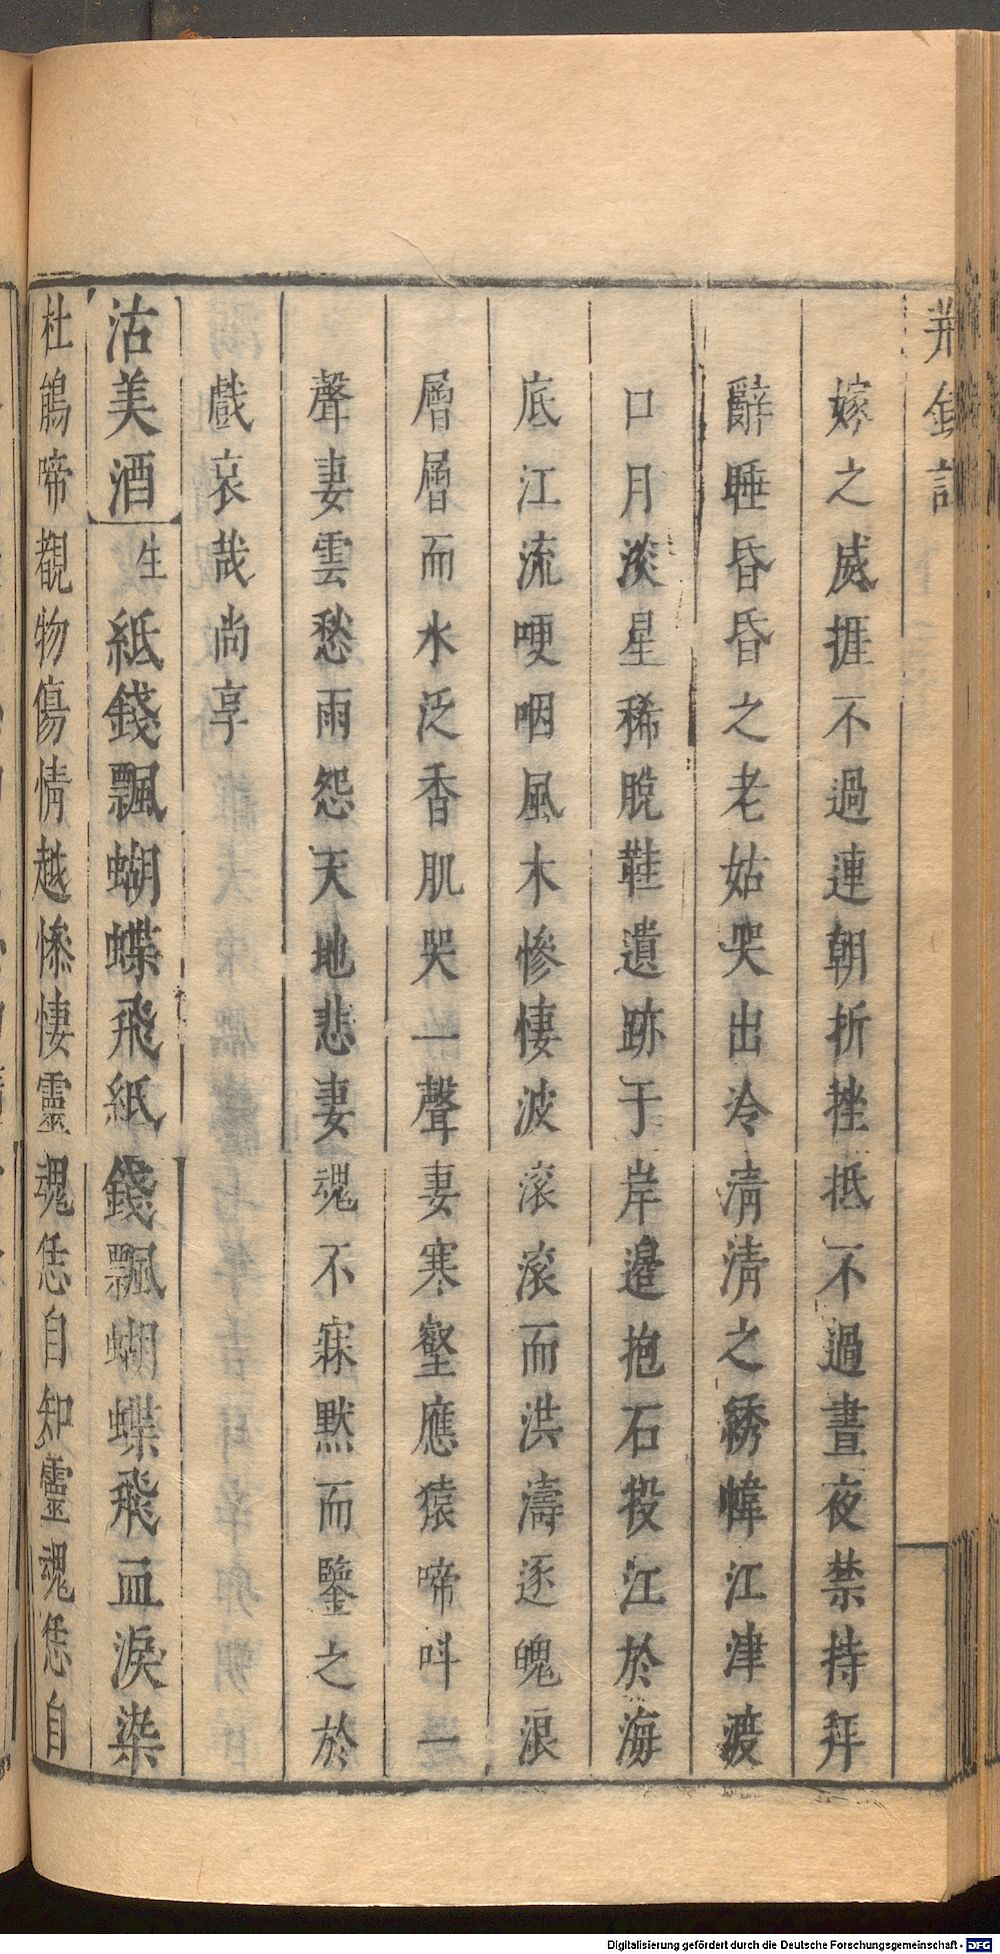 荆釵記
嫁之威捱不過連朝折挫抵不過晝夜禁持拜
辭睡昏昏之老姑哭出冷清清之綉幃江津渡
口月淡星稀脫鞋遺跡于岸邉抱石投江於海
底江流哽咽風木慘悽波滾滾而洪濤逐魄浪
層層而水泛香肌哭一聲妻寒壑應猿啼呌一
聲妻雲愁雨怨天地悲妻魂不寐默而鑒之於
戲哀哉尚享
沽美酒 生 紙錢飄蝴蝶飛紙錢飄蝴蝶飛血淚染
杜鵑啼覩物傷情越慘悽靈魂恁自知靈魂恁自
Digitalisierung gefördert durch die Deutsche Forschungsgemeinschaft - DFG